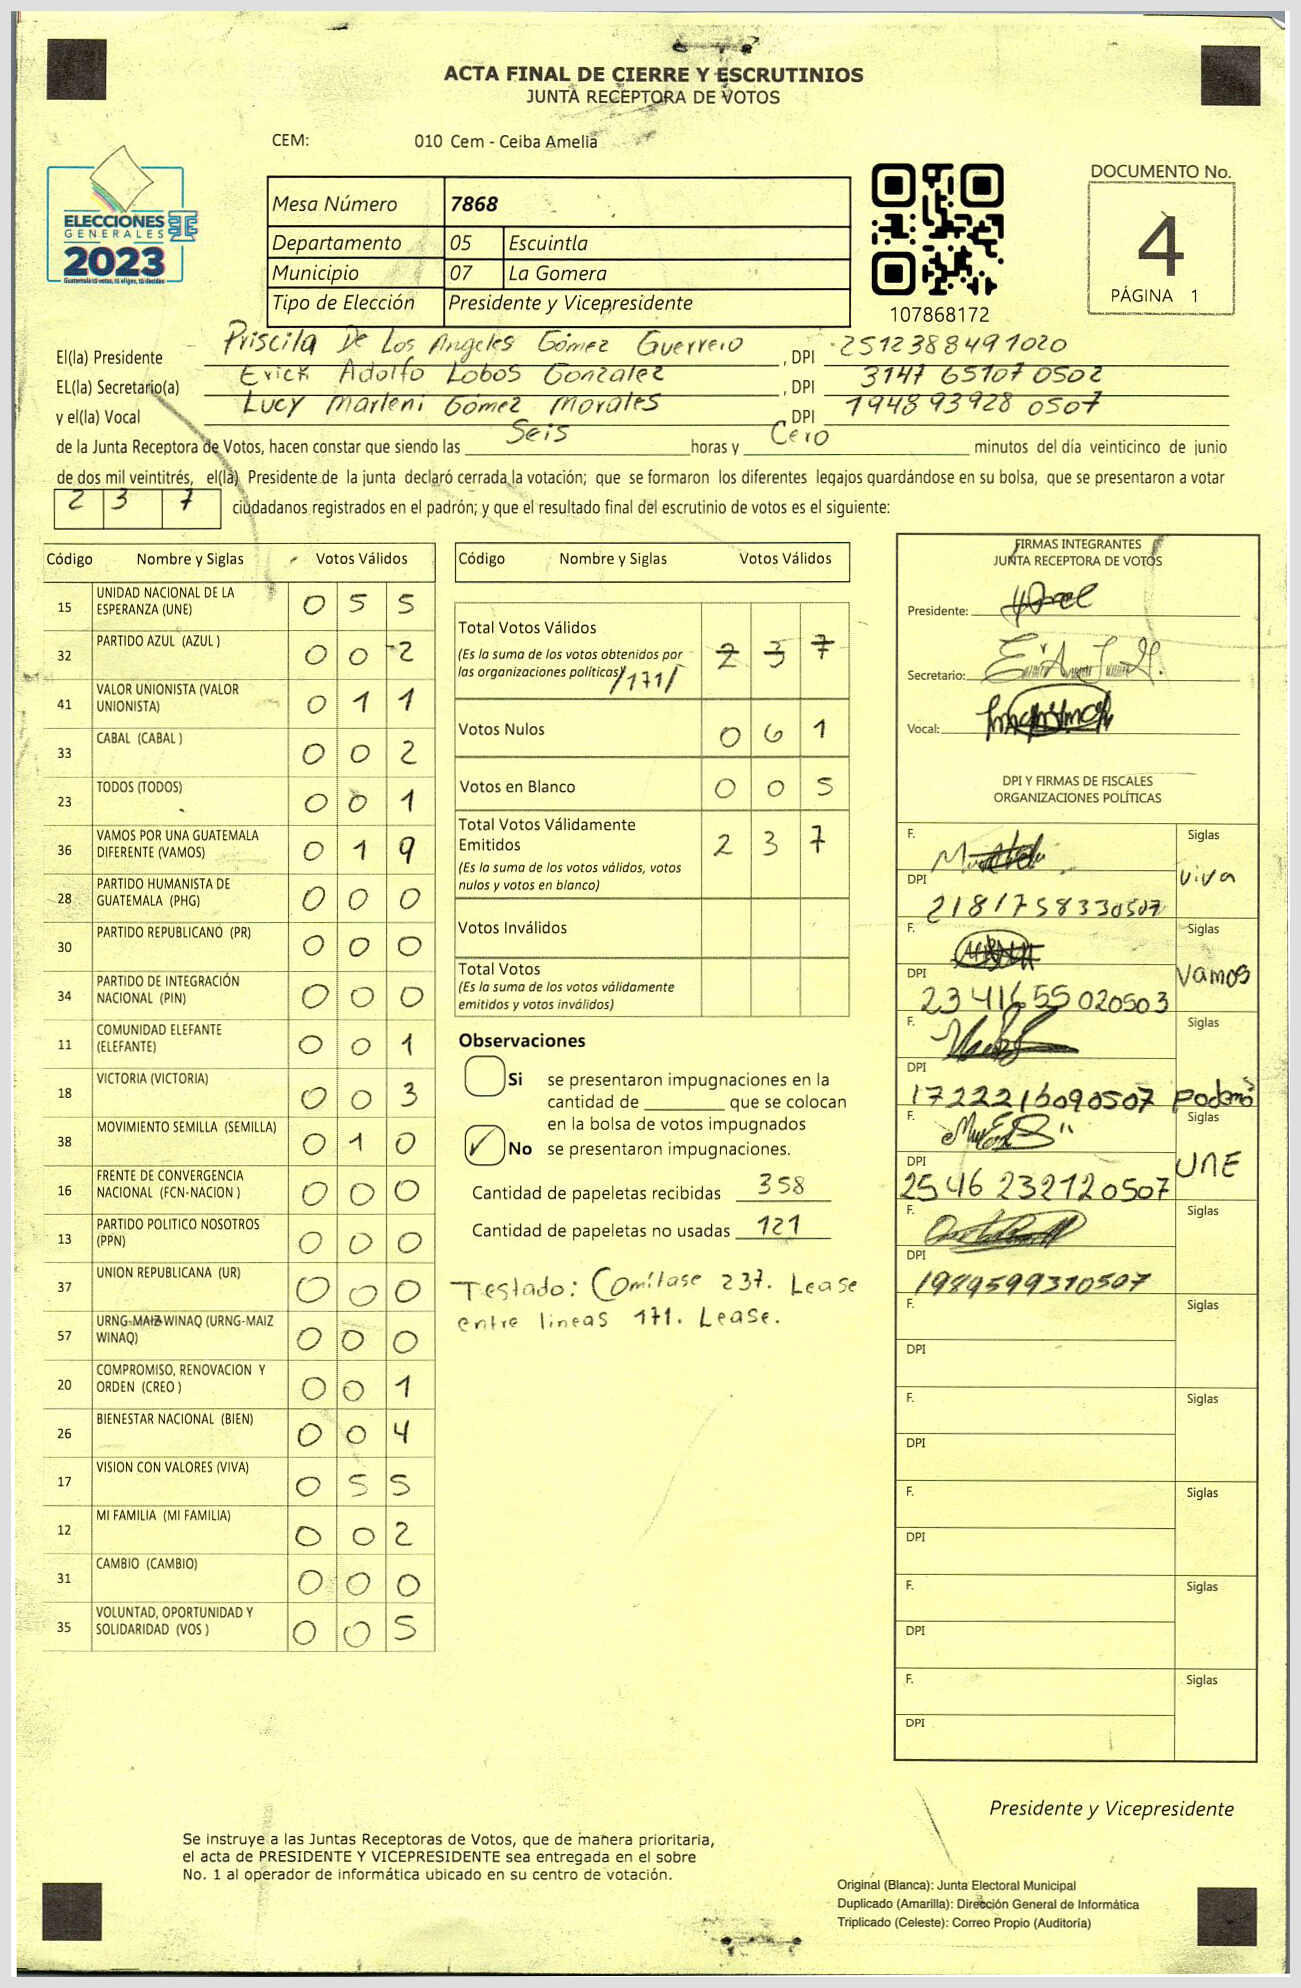 ACTA FINAL DE CIERRE Y ESCRUTINIOS
JUNTA RECEPTORA DE VOTOS
CEM: 010 Cem - Ceiba Amelia
ELECCIONES
GENERALES
2023
Guatemala tú votas, tú eliges, tú decides
Mesa Número 7868
Departamento 05 Escuintla
Municipio 07 La Gomera
Tipo de Elección Presidente y Vicepresidente
107868172
DOCUMENTO No.
4
PÁGINA 1
El(la) Presidente Priscila De Los Angeles Gómez Guerrero , DPI 2512388491020
EL(la) Secretario(a) Erick Adolfo Lobos Gonzalez , DPI 3147 65107 0502
y el(la) Vocal Lucy Marleni Gómez Morales , DPI 194893928 0507
de la Junta Receptora de Votos, hacen constar que siendo las Seis horas y Cero minutos del día veinticinco de junio
de dos mil veintitrés, el(la) Presidente de la junta declaró cerrada la votación; que se formaron los diferentes legajos quardándose en su bolsa, que se presentaron a votar
2 3 7 ciudadanos registrados en el padrón; y que el resultado final del escrutinio de votos es el siguiente:
Código Nombre y Siglas Votos Válidos
15 UNIDAD NACIONAL DE LA ESPERANZA (UNE) 0 5 5
32 PARTIDO AZUL (AZUL ) 0 0 2
41 VALOR UNIONISTA (VALOR UNIONISTA) 0 1 1
33 CABAL (CABAL ) 0 0 2
23 TODOS (TODOS) 0 0 1
36 VAMOS POR UNA GUATEMALA DIFERENTE (VAMOS) 0 1 9
28 PARTIDO HUMANISTA DE GUATEMALA (PHG) 0 0 0
30 PARTIDO REPUBLICANO (PR) 0 0 0
34 PARTIDO DE INTEGRACIÓN NACIONAL (PIN) 0 0 0
11 COMUNIDAD ELEFANTE (ELEFANTE) 0 0 1
18 VICTORIA (VICTORIA) 0 0 3
38 MOVIMIENTO SEMILLA (SEMILLA) 0 1 0
16 FRENTE DE CONVERGENCIA NACIONAL (FCN-NACION ) 0 0 0
13 PARTIDO POLITICO NOSOTROS (PPN) 0 0 0
37 UNION REPUBLICANA (UR) 0 0 0
57 URNG-MAIZ-WINAQ (URNG-MAIZ WINAQ) 0 0 0
20 COMPROMISO, RENOVACION Y ORDEN (CREO ) 0 0 1
26 BIENESTAR NACIONAL (BIEN) 0 0 4
17 VISION CON VALORES (VIVA) 0 5 5
12 MI FAMILIA (MI FAMILIA) 0 0 2
31 CAMBIO (CAMBIO) 0 0 0
35 VOLUNTAD, OPORTUNIDAD Y SOLIDARIDAD (VOS ) 0 0 5
Código Nombre y Siglas Votos Válidos
Total Votos Válidos 2 3 7
(Es la suma de los votos obtenidos por
las organizaciones políticas) /171/
Votos Nulos 0 6 1
Votos en Blanco 0 0 5
Total Votos Válidamente
Emitidos 2 3 7
(Es la suma de los votos válidos, votos
nulos y votos en blanco)
Votos Inválidos
Total Votos
(Es la suma de los votos válidamente
emitidos y votos inválidos)
Observaciones
Si se presentaron impugnaciones en la
cantidad de ________ que se colocan
en la bolsa de votos impugnados
✓ No se presentaron impugnaciones.
Cantidad de papeletas recibidas 358
Cantidad de papeletas no usadas 121
Testado: Omítase 237. Lease
entre lineas 171. Lease.
FIRMAS INTEGRANTES
JUNTA RECEPTORA DE VOTOS
Presidente:
Secretario:
Vocal:
DPI Y FIRMAS DE FISCALES
ORGANIZACIONES POLÍTICAS
F. Siglas viva
DPI 2181758330507
F. Siglas Vamos
DPI 2341655020503
F. Siglas podemos
DPI 1722216090507
F. Siglas UNE
DPI 2546 232120507
F. Siglas
DPI 1989599310507
F. Siglas
DPI
F. Siglas
DPI
F. Siglas
DPI
F. Siglas
DPI
F. Siglas
DPI
Presidente y Vicepresidente
Se instruye a las Juntas Receptoras de Votos, que de manera prioritaria,
el acta de PRESIDENTE Y VICEPRESIDENTE sea entregada en el sobre
No. 1 al operador de informática ubicado en su centro de votación.
Original (Blanca): Junta Electoral Municipal
Duplicado (Amarilla): Dirección General de Informática
Triplicado (Celeste): Correo Propio (Auditoría)